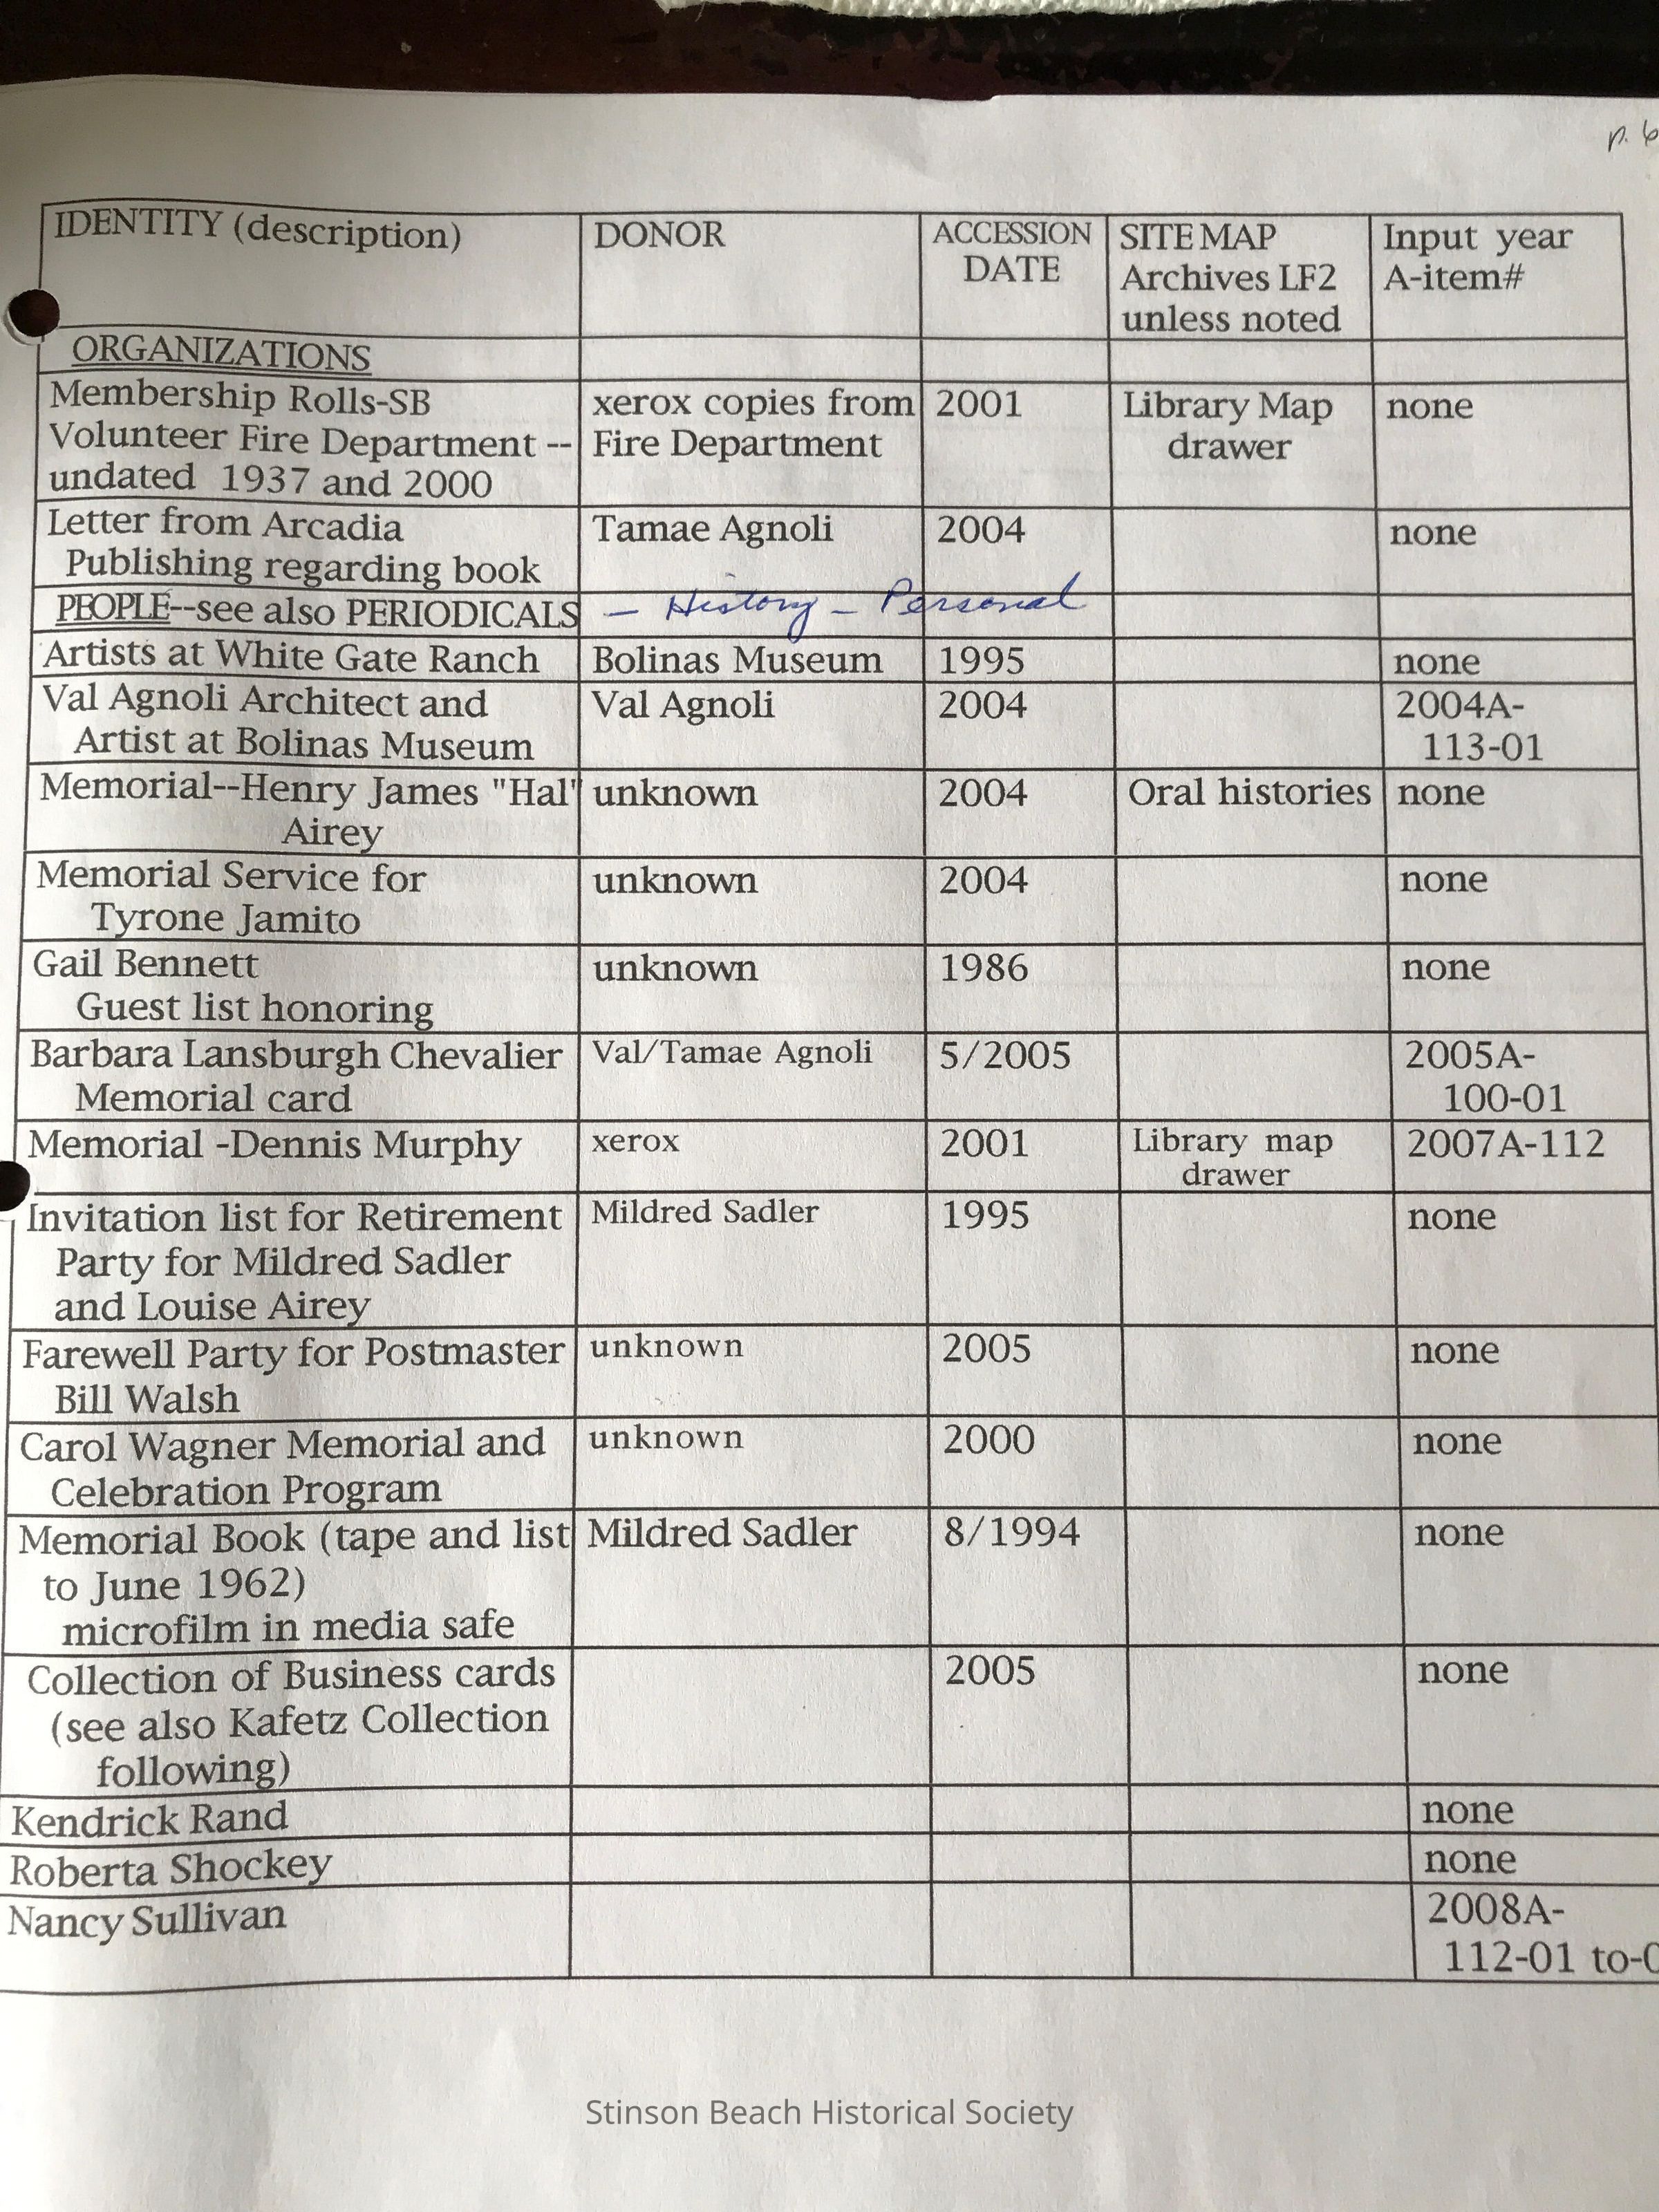 p. 6
IDENTITY (description) DONOR ACCESSION DATE SITE MAP Archives LF2 unless noted Input year A-item#
ORGANIZATIONS
Membership Rolls-SB xerox copies from 2001 Library Map none
Volunteer Fire Department -- Fire Department drawer
undated 1937 and 2000
Letter from Arcadia Tamae Agnoli 2004 none
Publishing regarding book
PEOPLE--see also PERIODICALS – History – Personal
Artists at White Gate Ranch Bolinas Museum 1995 none
Val Agnoli Architect and Val Agnoli 2004 2004A-
Artist at Bolinas Museum 113-01
Memorial--Henry James "Hal" unknown 2004 Oral histories none
Airey
Memorial Service for unknown 2004 none
Tyrone Jamito
Gail Bennett unknown 1986 none
Guest list honoring
Barbara Lansburgh Chevalier Val/Tamae Agnoli 5/2005 2005A-
Memorial card 100-01
Memorial -Dennis Murphy xerox 2001 Library map 2007A-112
drawer
Invitation list for Retirement Mildred Sadler 1995 none
Party for Mildred Sadler
and Louise Airey
Farewell Party for Postmaster unknown 2005 none
Bill Walsh
Carol Wagner Memorial and unknown 2000 none
Celebration Program
Memorial Book (tape and list Mildred Sadler 8/1994 none
to June 1962)
microfilm in media safe
Collection of Business cards 2005 none
(see also Kafetz Collection
following)
Kendrick Rand none
Roberta Shockey none
Nancy Sullivan 2008A-
112-01 to-0
Stinson Beach Historical Society